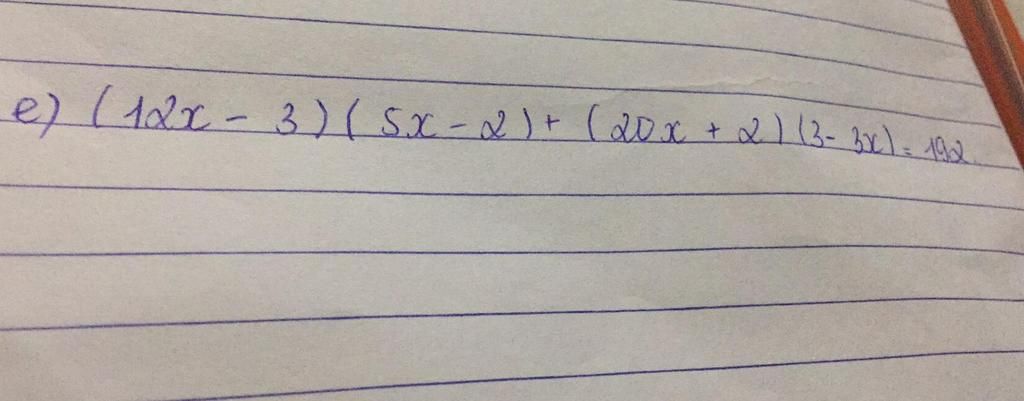 e) (12x - 3)(5x - 2) + (20x + 2)(3 - 3x) = 192